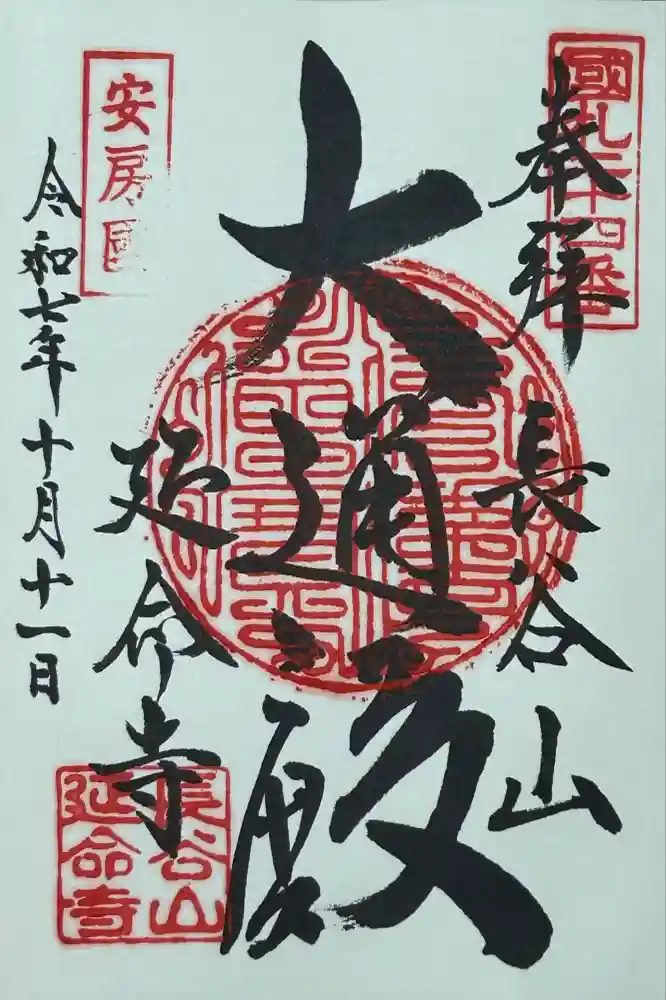 國札二十四番
奉拝
長谷山
大通殿
安房國
延命寺
令和七年十月十一日
長谷山
延命寺